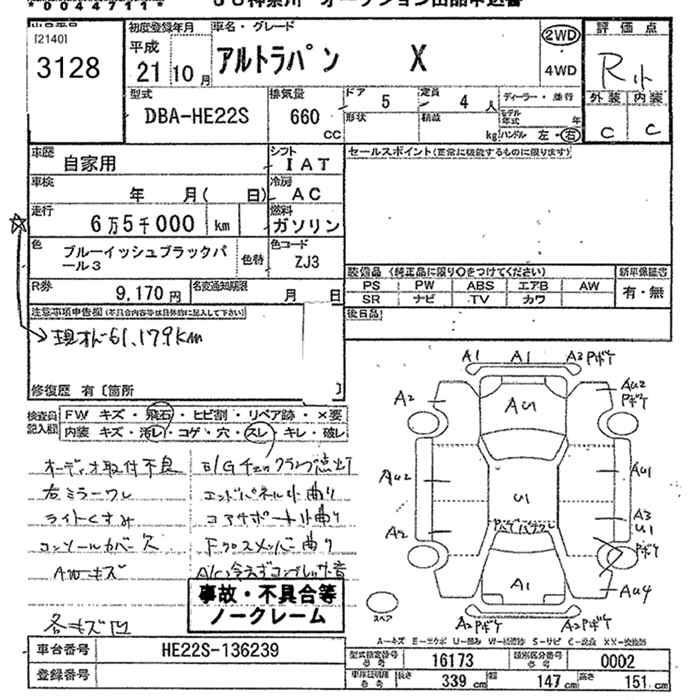 *0044711*
JU神奈川 オークション出品申込書
出品番号
[2140]
3128
初度登録年月
平成
21年10月
車名・グレード
アルトラパン X
2WD
4WD
評価点
R小
外装 内装
C C
型式
DBA-HE22S
排気量
660
CC
ドア 5
定員 4 人
ディーラー・並行
形状
積載 kg
モデル年式 年
ハンドル 左・右
車歴
自家用
シフト
IAT
車検
年 月(日)
冷房
AC
走行
6万5千000 km
燃料
ガソリン
色
ブルーイッシュブラックパール3
色替
色コード
ZJ3
R券
9,170円
名変通知期限
月 日
セールスポイント(正常に機能するものに限ります)
装備品 (純正品に限り○をつけてください)
新車保証書
PS PW ABS エアB AW
有・無
SR ナビ TV カワ
後日品
注意事項申告欄(不具合内容等は具体的に記入して下さい)
現オド61,179km
修復歴 有〔箇所
検査員記入欄
FW キズ・飛石・ヒビ割・リペア跡・X要
内装 キズ・汚レ・コゲ・穴・スレ・キレ・破レ
オーディオ取付不良
E/Gチェックランプ点灯
右ミラーワレ
エンドパネル小曲り
ライトくすみ
コアサポート小曲り
コンソールカバー欠
Fクロスメンバー曲り
AWキズ
A/C冷えずコンプレッサ音
各キズ凹
事故・不具合等
ノークレーム
A1 A1 A3 Pボケ
A2 AU1 AU2 Pボケ
AU2 U1 AU1
A3 U1
A2 Pボケ
A1 AU4
A2Pボケ A2Pボケ
スペア
A-キズ E-エクボ U-凹み W-補修跡 S-サビ C-腐食 XX-交換跡
車台番号
HE22S-136239
登録番号
型式指定番号
16173
類別区分番号
0002
長さ 339 cm 幅 147 cm 高さ 151 cm